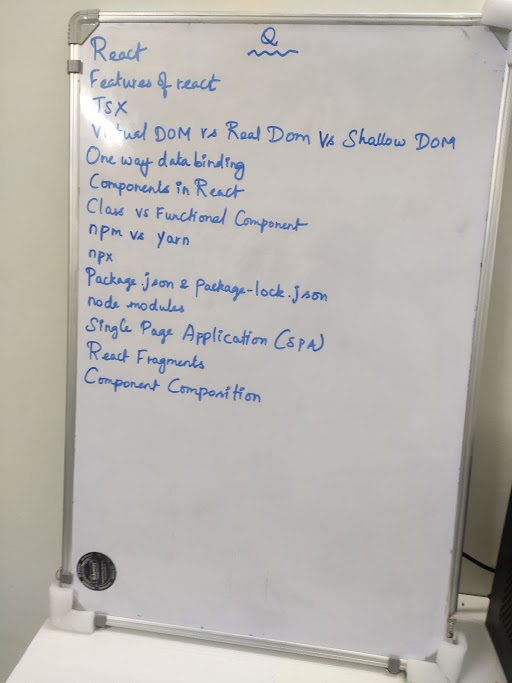 Q
React
Features of react
JSX
Virtual DOM vs Real Dom Vs Shallow DOM
One way data binding
Components in React
Class vs Functional Component
npm vs yarn
npx
Package.json & package-lock.json
node modules
Single Page Application (SPA)
React Fragments
Component Composition